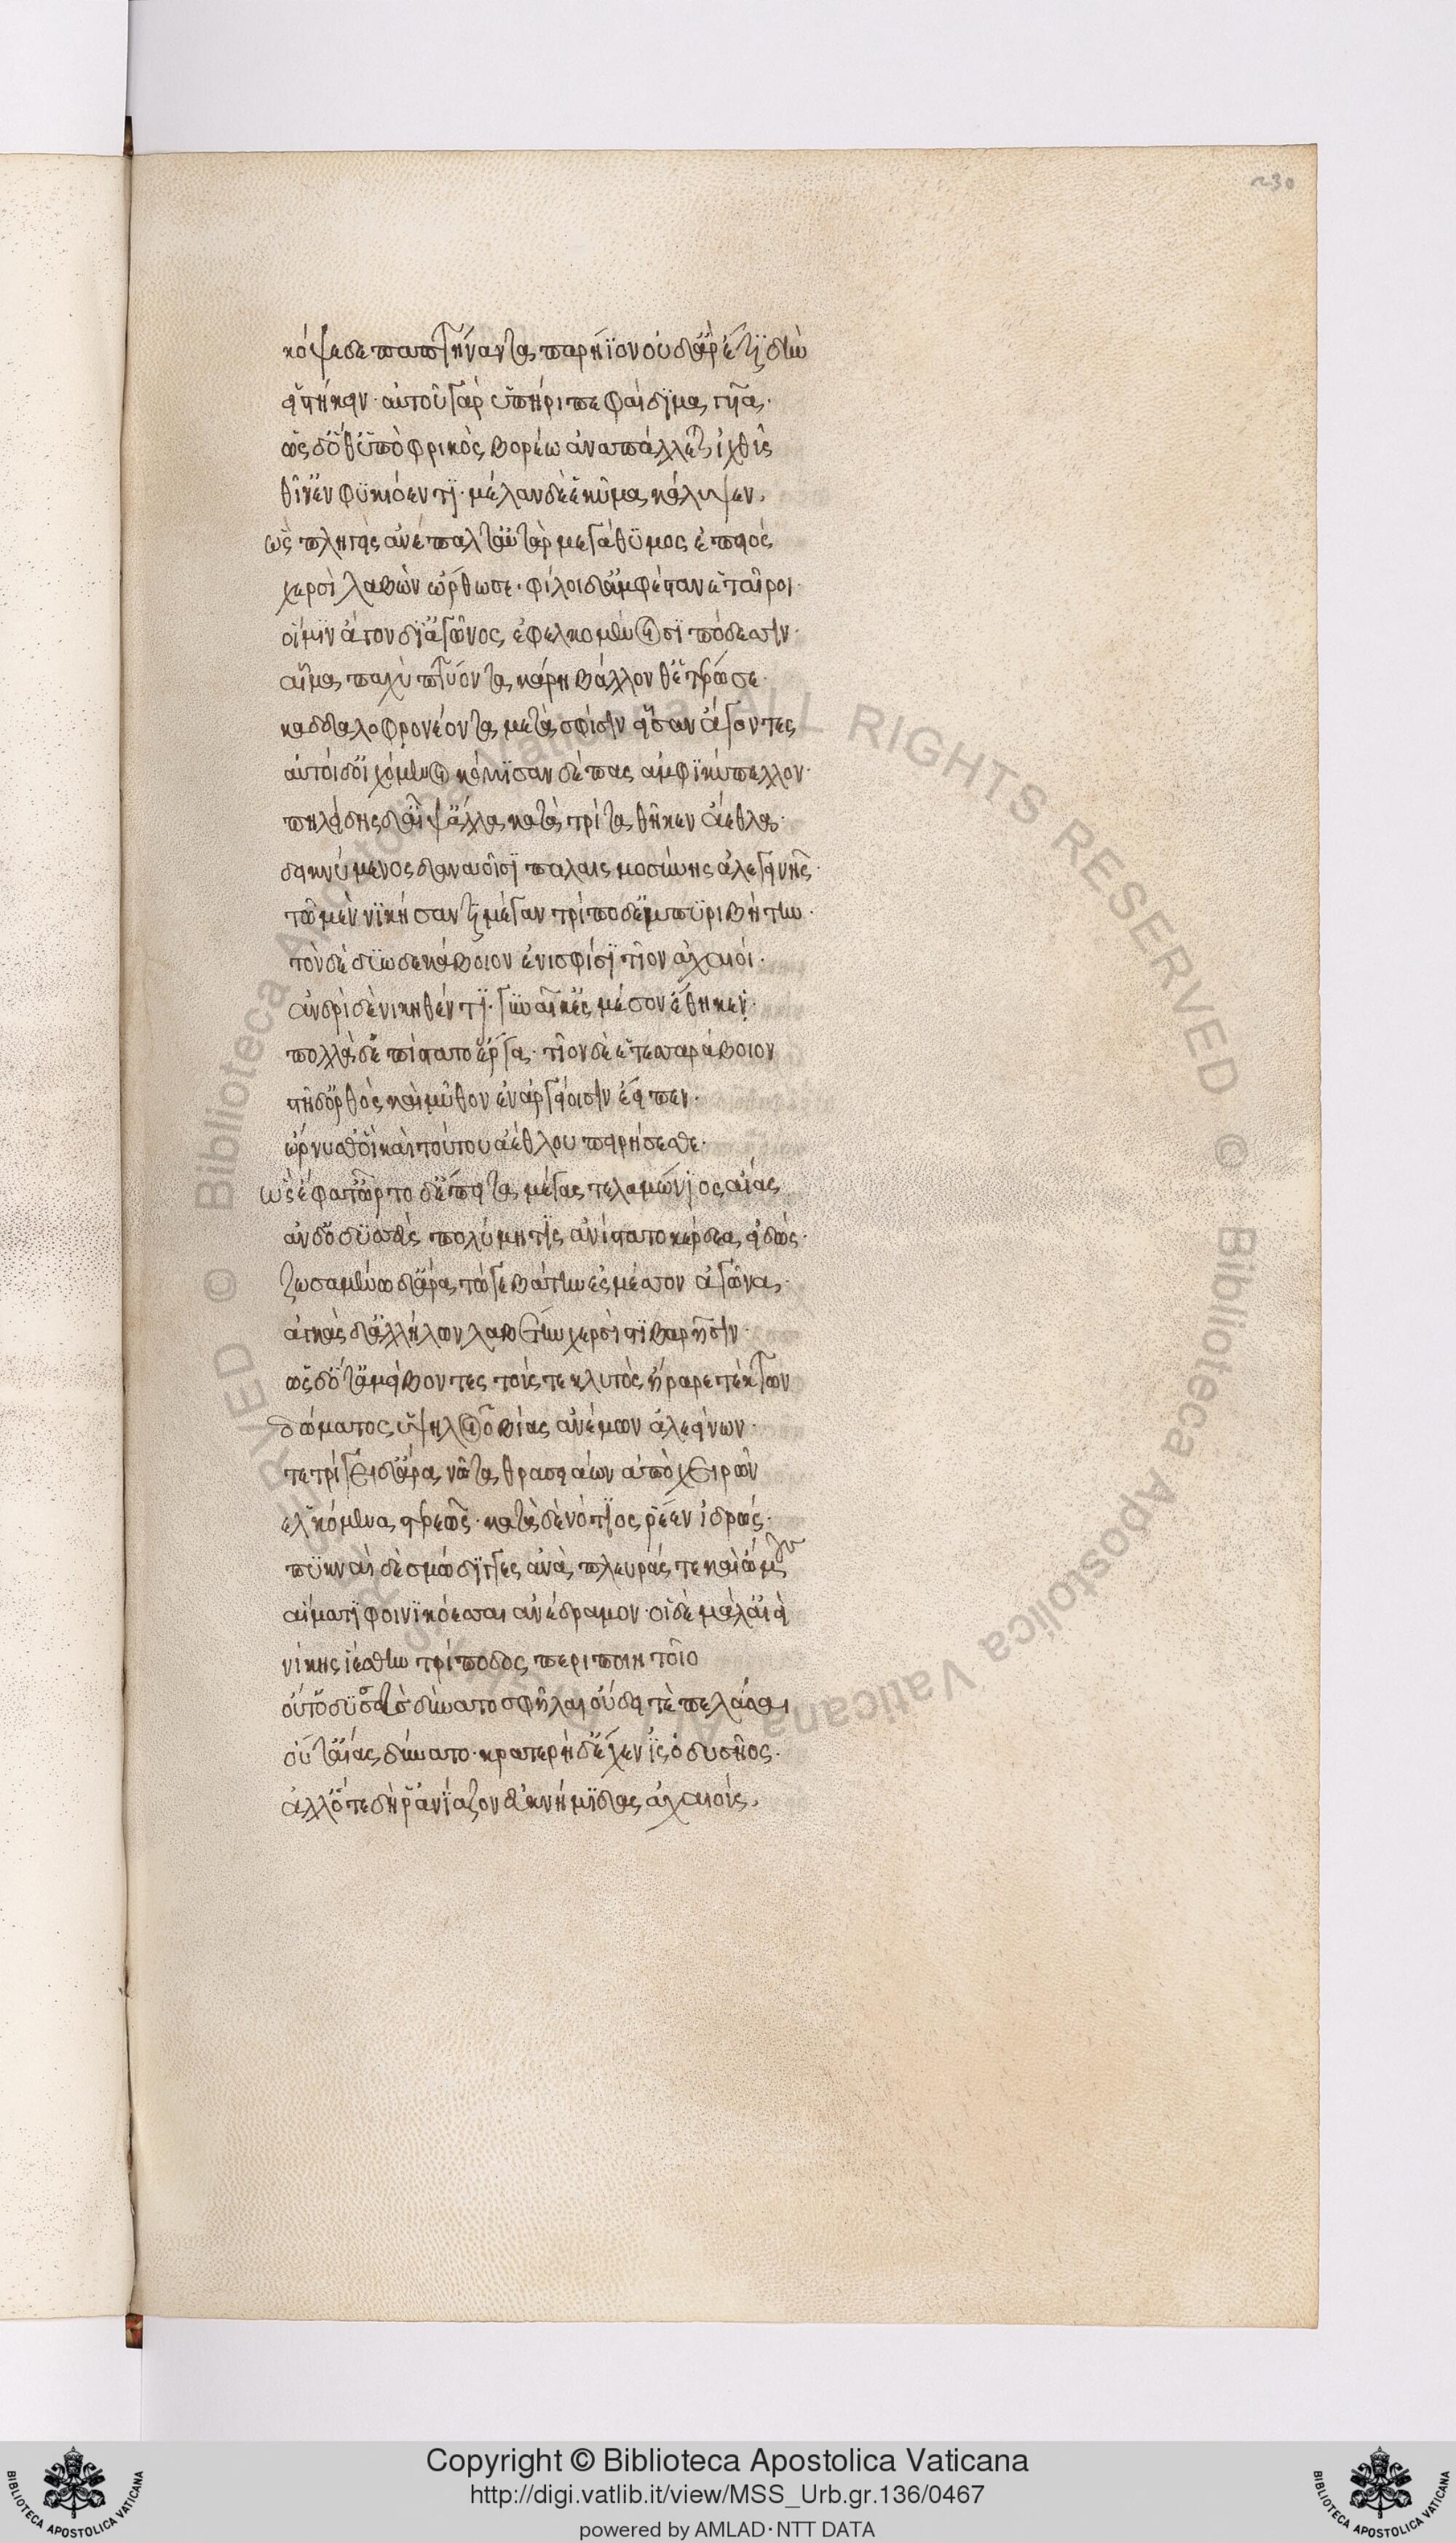 230
κόψε δε παπτήναντα παρήϊον οὐδ' ἄρ ἔτι δὴν
εἱστήκειν· αὐτοῦ γὰρ ὑπήριπε φαίδιμα γυῖα·
ὡς δ' ὅθ' ὑπὸ φρικὸς βορέω ἀναπάλλεται ἰχθῦς
θῖν' ἐν φυκιόεντι· μέλαν δέ ἑ κῦμα κάλυψεν·
ὣς πληγεὶς ἀνέπαλτ' αὐτὰρ μεγάθυμος ἐπειὸς
χερσὶ λαβὼν ὤρθωσε· φίλοι δ' ἀμφέσταν ἑταῖροι·
οἵ μιν ἄγον δι' ἀγῶνος ἐφελκομένοισι πόδεσσιν·
αἷμα παχὺ πτύοντα κάρη βάλλονθ' ἑτέρωσε·
καδδ' αλοφρονέοντα μετὰ σφίσιν εἷσαν ἄγοντες
αὐτοὶ δ' οἰχόμενοι κόμισαν δέπας ἀμφικύπελλον·
πηλείδης δ' αἶψ' ἄλλα κατὰ τρίτα θῆκεν ἄεθλα·
δεικνύμενος δαναοῖσι παλαισμοσύνης ἀλεγεινῆς·
τῶ μὲν νικήσαντι μέγαν τρίποδ' ἐμπυριβήτην·
τὸν δὲ δυωδεκάβοιον ἐνι σφίσι τῖον ἀχαιοί·
ἀνδρὶ δὲ νικηθέντι· γυναῖκ' ἐς μέσον ἔθηκεν·
πολλὰ δ' ἐπίστατο ἔργα· τῖον δέ ἑ τεσσαράβοιον
στῆ δ' ὀρθὸς καὶ μῦθον ἐν ἀργείοισιν ἔειπεν·
ὤρνυσθ' οἳ καὶ τούτου ἀέθλου πειρήσεσθε·
ὣς ἔφατ' ὦρτο δ' ἔπειτα μέγας τελαμώνιος αἴας
ἂν δ' ὀδυσσεὺς πολύμητις ἀνίστατο κέρδεα εἰδώς·
ζωσαμένω δ' ἄρα τώγε βάτην ἐς μέσσον ἀγῶνα·
ἀγκὰς δ' ἀλλήλων λαβέτην χερσὶ στιβαρῆσιν·
ὡς δ' ὅτ' ἀμείβοντες τούς τε κλυτὸς ἤραρε τέκτων
δώματος ὑψηλοῖο βίας ἀνέμων ἀλεείνων·
τετρίγει δ' ἄρα νῶτα θρασειάων ἀπὸ χειρῶν
ἑλκόμενα στερεῶς· κατὰ δὲ νότιος ῥέεν ἱδρώς·
πυκναὶ δὲ σμώδιγγες ἀνὰ πλευράς τε καὶ ὤμους
αἵματι φοινικόεσσαι ἀνέδραμον· οἱ δὲ μάλ' αἰεὶ
νίκης ἱέσθην τρίποδος περι ποιητοῖο
οὔτ' ὀδυσσεὺς δύνατο σφῆλαι οὔδει τὲ πελάσσαι
οὔτ' αἴας δύνατο· κρατερὴ δ' ἔχεν ἲς ὀδυσῆος·
ἀλλ' ὅτε δή ῥ' ἀνίαζον ἐϋκνήμιδας ἀχαιούς·
Copyright © Biblioteca Apostolica Vaticana
http://digi.vatlib.it/view/MSS_Urb.gr.136/0467
powered by AMLAD·NTT DATA